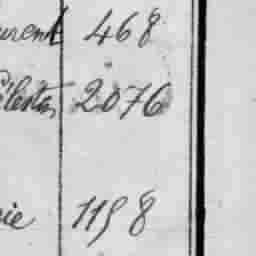 urent 468
élestin 2076
rie 1198